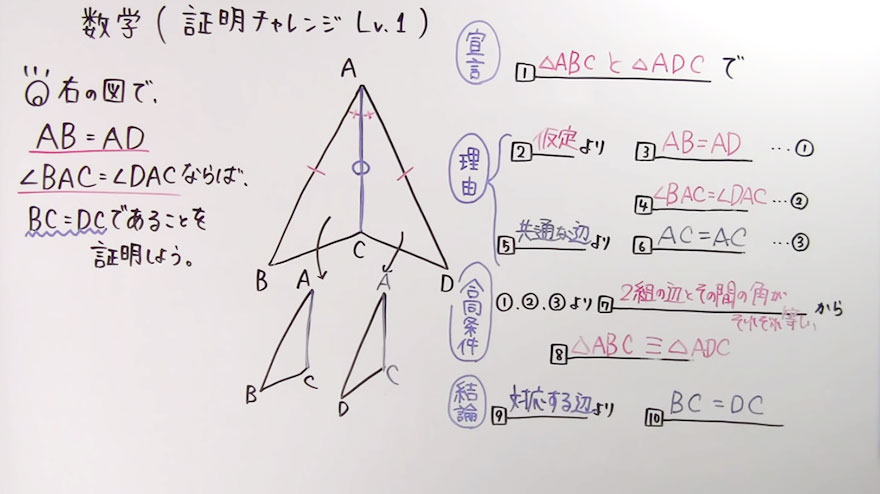 数学 ( 証明チャレンジ Lv.1 )
右の図で、
AB = AD
∠BAC = ∠DAC ならば、
BC = DC であることを
証明しよう。
A
B
C
D
A
B
C
A
D
C
宣言
1 △ABC と △ADC で
理由
2 仮定 より 3 AB = AD …①
4 ∠BAC = ∠DAC …②
5 共通な辺 より 6 AC = AC …③
合同条件
①、②、③ より 7 2組の辺とその間の角が
それぞれ等しい から
8 △ABC ≡ △ADC
結論
9 対応する辺 より 10 BC = DC